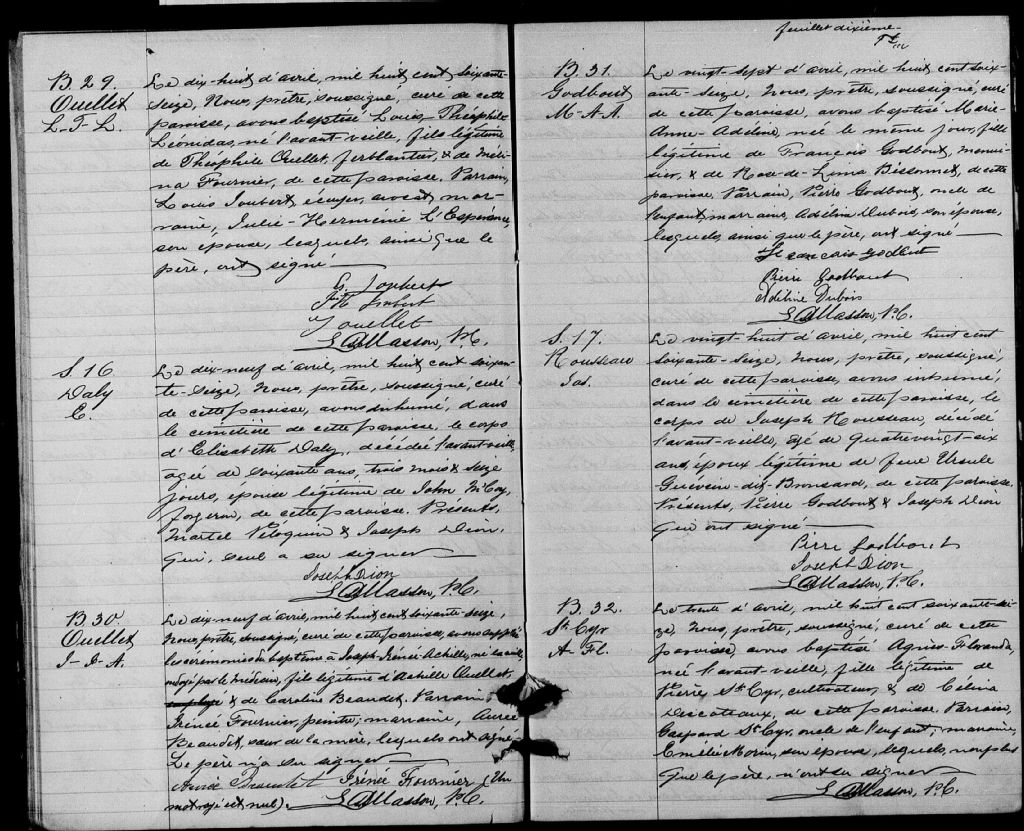 B. 29.
Ouellet
L-T-L.
Le dix-huit d'avril, mil huit cent soixante-
seize, Nous, prêtre, soussigné, curé de cette
paroisse, avons baptisé Louis-Théophile
Léonidas, né l'avant-veille, fils légitime
de Théophile Ouellet, ferblantier, & de Méli-
na Fournier, de cette paroisse. Parrain,
Louis Joubert, écuyer, avocat, mar-
raine, Julie-Herménie L'Esperance,
son épouse, lesquels, ainsi que le
père, ont signé
Joubert
Joubert
T Ouellet
Masson, P.C.
S. 16
Daly
E.
Le dix-neuf d'avril, mil huit cent soixan-
te-seize, Nous, prêtre, soussigné, curé
de cette paroisse, avons inhumé, dans
le cimetière de cette paroisse, le corps
d'Elisabeth Daly, décédée l'avant-veille,
agée de soixante ans, trois mois & seize
jours, épouse légitime de John McCoy,
forgeron, de cette paroisse. Présents,
Martel Péloquin & Joseph Dion,
qui, seul a su signer
Joseph Dion
Masson, P.C.
B. 30.
Ouellet
J-I-A.
Le dix-neuf d'avril, mil huit cent soixante-seize,
Nous, prêtre, soussigné, curé de cette paroisse, avons suppléé
les cérémonies du baptême à Joseph-Irénée Achille, né la veille,
ondoyé par le médecin, fils légitime d'Achille Ouellet,
& de Caroline Beaudet. Parrain,
Irénée Fournier, peintre; marraine, Aurée
Beaudet, sœur de la mère, lesquels ont signé.
Le père n'a su signer
Aurée Beaudet Irénée Fournier (Un
mot rayé est nul). Masson, P.C.
feuillet dixième
B. 31.
Godbout
M-A-A.
Le vingt-sept d'avril, mil huit cent soix-
ante-seize, Nous, prêtre, soussigné, curé
de cette paroisse, avons baptisé Marie-
Anne-Adeline, née le même jour, fille
légitime de François Godbout, menui-
sier, & de Rose-de-Lima Bissonnet, de cette
paroisse. Parrain, Pierre Godbout, oncle de
l'enfant; marraine, Adéline Dubois, son épouse,
lesquels, ainsi que le père, ont signé
François Godbout
Pierre Godbout
Adéline Dubois
Masson, P.C.
S. 17.
Rousseau
Jos.
Le vingt-huit d'avril, mil huit cent
soixante-seize, Nous, prêtre, soussigné,
curé de cette paroisse, avons inhumé,
dans le cimetière de cette paroisse, le
corps de Joseph Rousseau, décédé
l'avant-veille, agé de quatrevingt-six
ans, époux légitime de feue Ursule
dit-Bronsard, de cette paroisse.
Présents, Pierre Godbout & Joseph Dion
qui ont signé
Pierre Godbout
Joseph Dion
Masson, P.C.
B. 32.
St Cyr
A Fl.
Le trente d'avril, mil huit cent soixante-sei-
ze, Nous, prêtre, soussigné, curé de cette
paroisse, avons baptisé Agnès-Floranda,
née l'avant-veille, fille légitime de
Pierre St Cyr, cultivateur, & de Célina
Descoteaux, de cette paroisse. Parrain,
Gaspard St Cyr, oncle de l'enfant; marraine,
Emélie Morin, son épouse, lesquels, non plus
que le père, n'ont su signer
Masson, P.C.